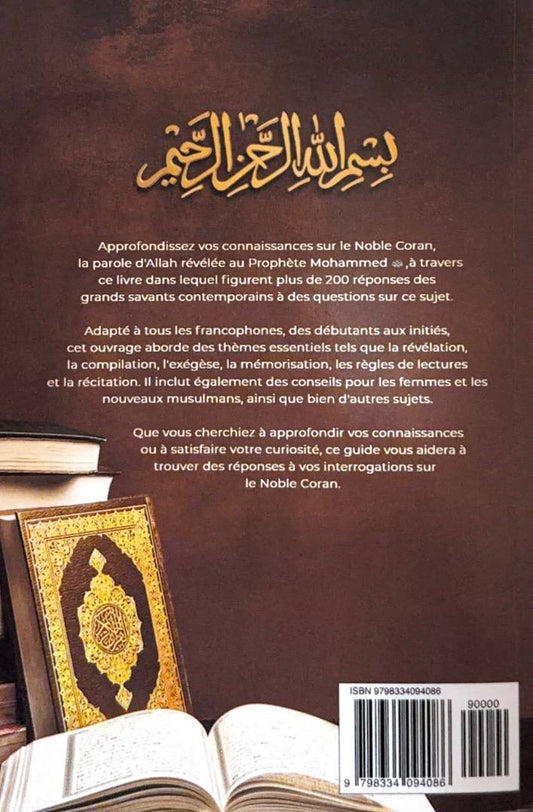 بِسْمِ اللهِ الرَّحْمٰنِ الرَّحِيْمِ
Approfondissez vos connaissances sur le Noble Coran,
la parole d'Allah révélée au Prophète Mohammed ﷺ ,à travers
ce livre dans lequel figurent plus de 200 réponses des
grands savants contemporains à des questions sur ce sujet.
Adapté à tous les francophones, des débutants aux initiés,
cet ouvrage aborde des thèmes essentiels tels que la révélation,
la compilation, l'exégèse, la mémorisation, les règles de lectures
et la récitation. Il inclut également des conseils pour les femmes et les
nouveaux musulmans, ainsi que bien d'autres sujets.
Que vous cherchiez à approfondir vos connaissances
ou à satisfaire votre curiosité, ce guide vous aidera à
trouver des réponses à vos interrogations sur
le Noble Coran.
ISBN 9798334094086
90000
9 798334 094086